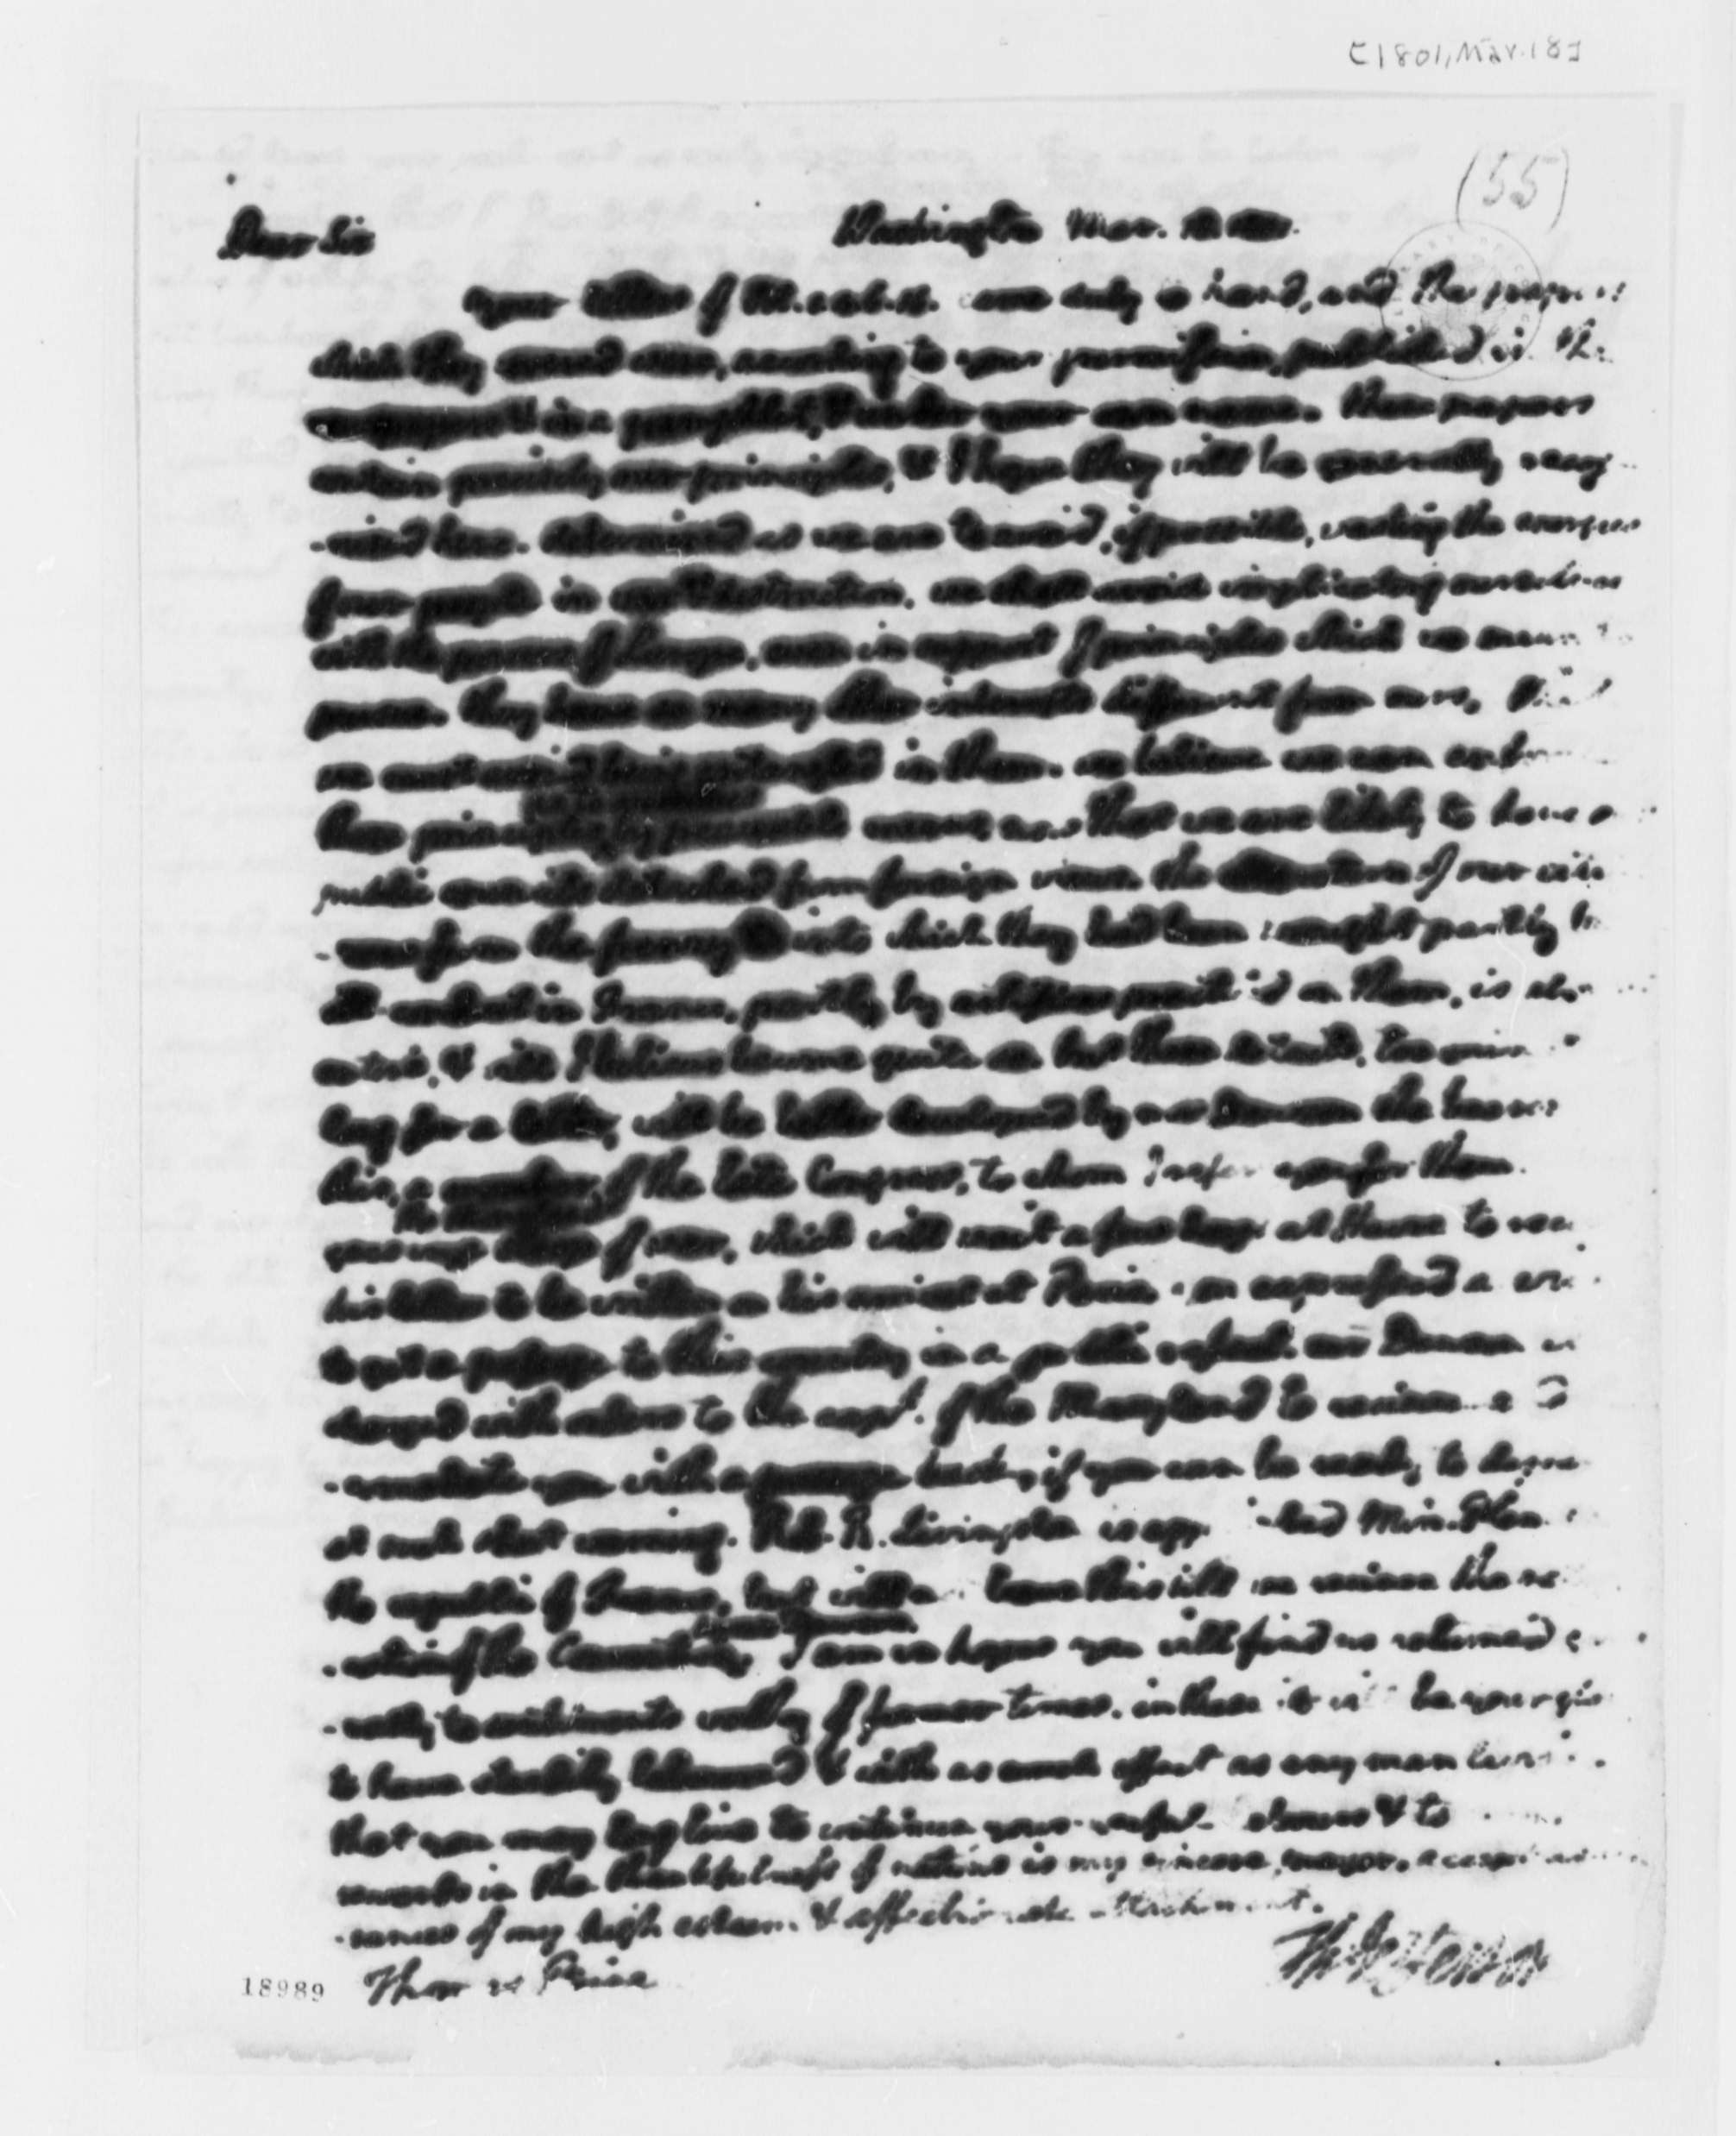 [1801, Mar. 18]
(55)
Dear Sir Washington Mar.
your letters of Oct. came duly to hand, and the papers
which they covered were, according to your permission, published in the
newspapers & in a pamphlet, & under your own name. these papers
contain precisely our principles, & I hope they will be generally recog
-nized here. determined as we are to avoid, if possible, wasting the energies
of our people in war & destruction, we shall avoid implicating ourselves
with the powers of Europe, even in support of principles which we mean to
pursue. they have so many other interests different from ours, that
we must avoid being entangled in them. we believe we can enf
those principles by peaceable means, now that we are likely to have
public councils detached from foreign views. the of our citi
-zens from the frenzy into which they had been wrought partly by
ill conduct in France, partly by artifices practised on them, is al
entire, & will I believe become quite so. but these details, too min
long for a letter, will be better developed by mr Dawson the bearer
this, a member of the late Congress, to whom I refer you for them.
the Maryland
sloop of war, which will wait a few days at Havre to rec
his letters to be written on his arrival at Paris. you expressed a wi
to get a passage to this country in a public vessel. mr Dawson is
charged with orders to the capt. of the Maryland to receive & ac
-comodate you with a passage back, if you can be ready to depa
at such short warning. Rob. R. Livingston is app ted Min. Plen.
the republic of France, but will leave this till we receive the
-cation of the Convention I am in hopes you will find us returned
-rally to sentiments worthy of former times. in these it will be your glo
to have steadily laboured & with as much effect as any man
that you may long live to continue your useful labours & to
rewards in the thankfulness of nations is my sincere prayer. accept as
-rances of my high esteem & affectionate attachment.
Th: Jefferson
Thomas Paine
18989